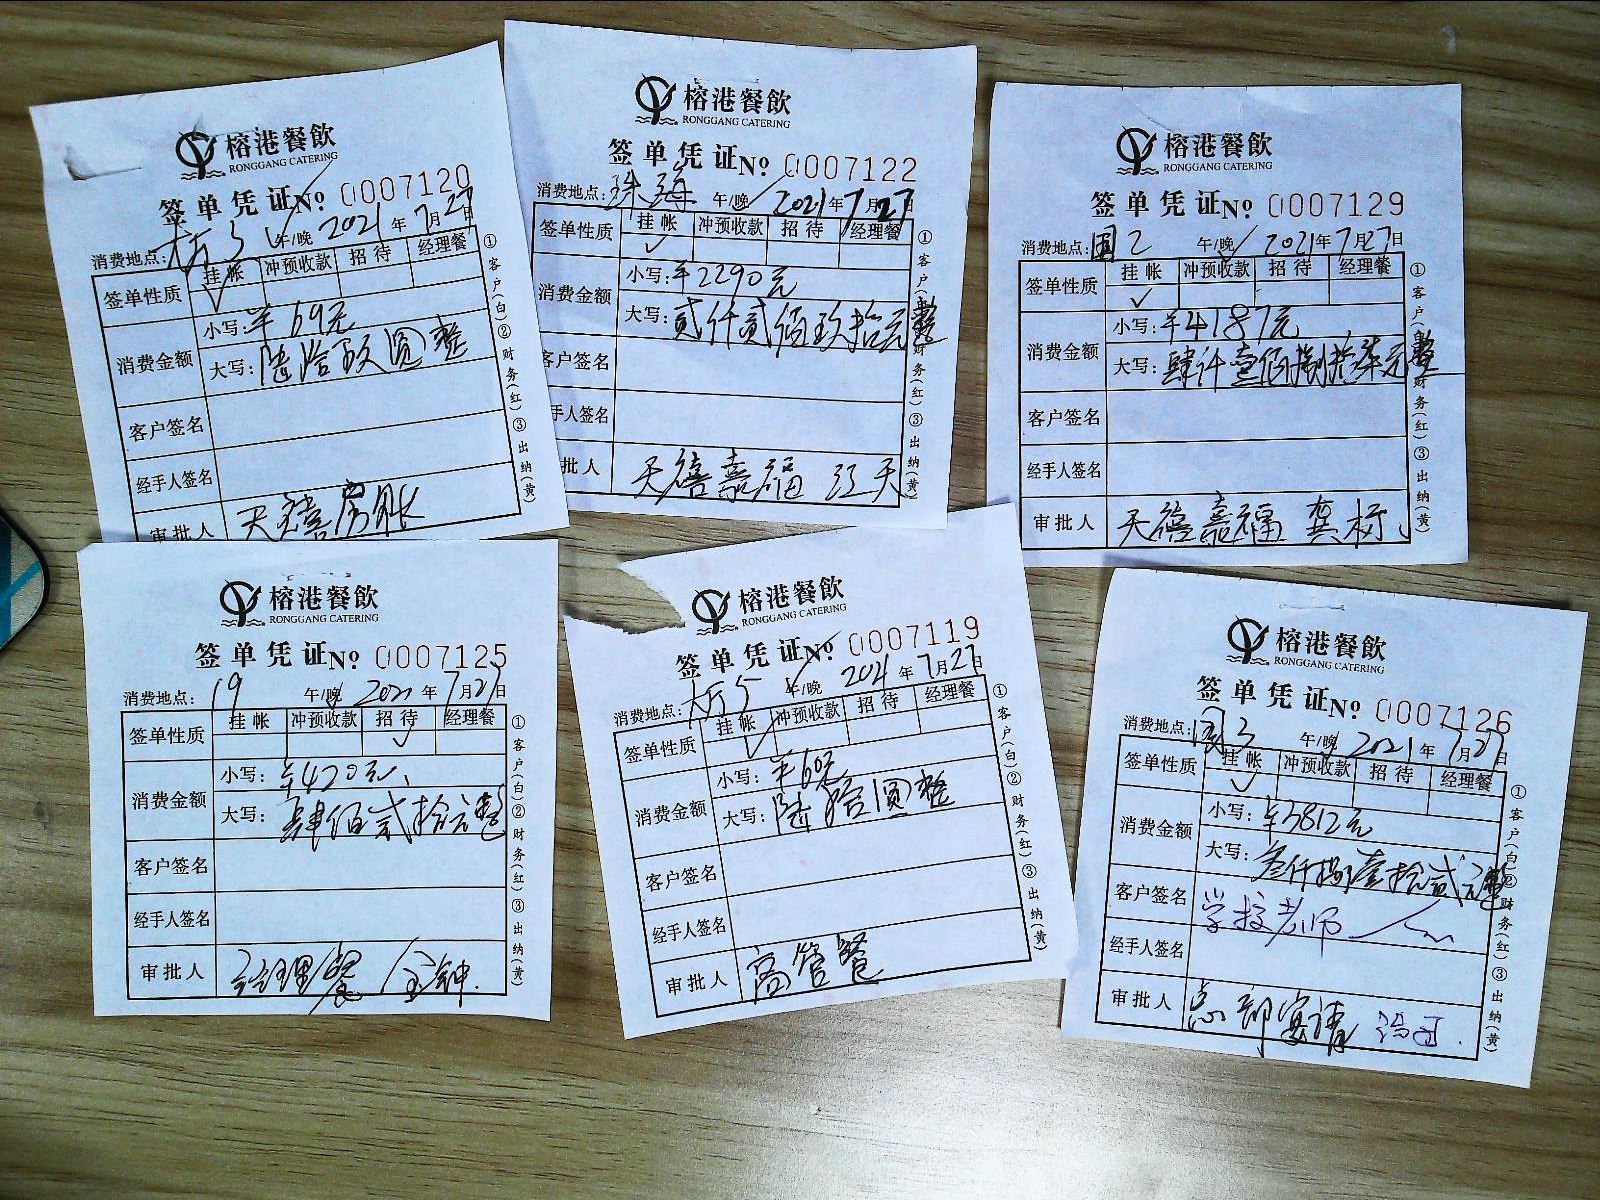 榕港餐飲
RONGGANG CATERING
签单凭证No 0007120
消费地点: 大厅3 午/晚 2021年7月27日
签单性质 挂帐 冲预收款 招待 经理餐
✓
消费金额 小写: ¥69元
大写: 陆拾玖圆整
客户签名
经手人签名
审批人 天禧房账
①客户(白)②财务(红)③出纳(黄)
榕港餐飲
RONGGANG CATERING
签单凭证No 0007122
消费地点: 珠海 午/晚 2021年7月27日
签单性质 挂帐 冲预收款 招待 经理餐
✓
消费金额 小写: ¥2290元
大写: 贰仟贰佰玖拾元整
客户签名
手人签名
批人 天禧嘉福 江天
①客户 财务(红)③出纳(黄)
榕港餐飲
RONGGANG CATERING
签单凭证No 0007129
消费地点: 国2 午/晚 2021年7月27日
签单性质 挂帐 冲预收款 招待 经理餐
✓
消费金额 小写: ¥4187元
大写: 肆仟壹佰捌拾柒元整
客户签名
经手人签名
审批人 天禧嘉福 龚树
①客户 财务(红)③出纳(黄)
榕港餐飲
RONGGANG CATERING
签单凭证No 0007125
消费地点: 19 午/晚 2021年7月27日
签单性质 挂帐 冲预收款 招待 经理餐
✓
消费金额 小写: ¥420元
大写: 肆佰贰拾元整
客户签名
经手人签名
审批人 经理餐 金钟
①客户(白)②财务(红)③出纳(黄)
榕港餐飲
RONGGANG CATERING
签单凭证No 0007119
消费地点: 大厅5 午/晚 2021年7月27日
签单性质 挂帐 冲预收款 招待 经理餐
✓
消费金额 小写: ¥60元
大写: 陆拾圆整
客户签名
经手人签名
审批人 高管餐
①客户(白)②财务(红)③出纳(黄)
榕港餐飲
RONGGANG CATERING
签单凭证No 0007126
消费地点: 国3 午/晚 2021年7月27日
签单性质 挂帐 冲预收款 招待 经理餐
✓
消费金额 小写: ¥3812元
大写: 叁仟捌壹拾贰元整
客户签名 学校老师
经手人签名
审批人 总部宴请
①客户(白)②财务(红)③出纳(黄)